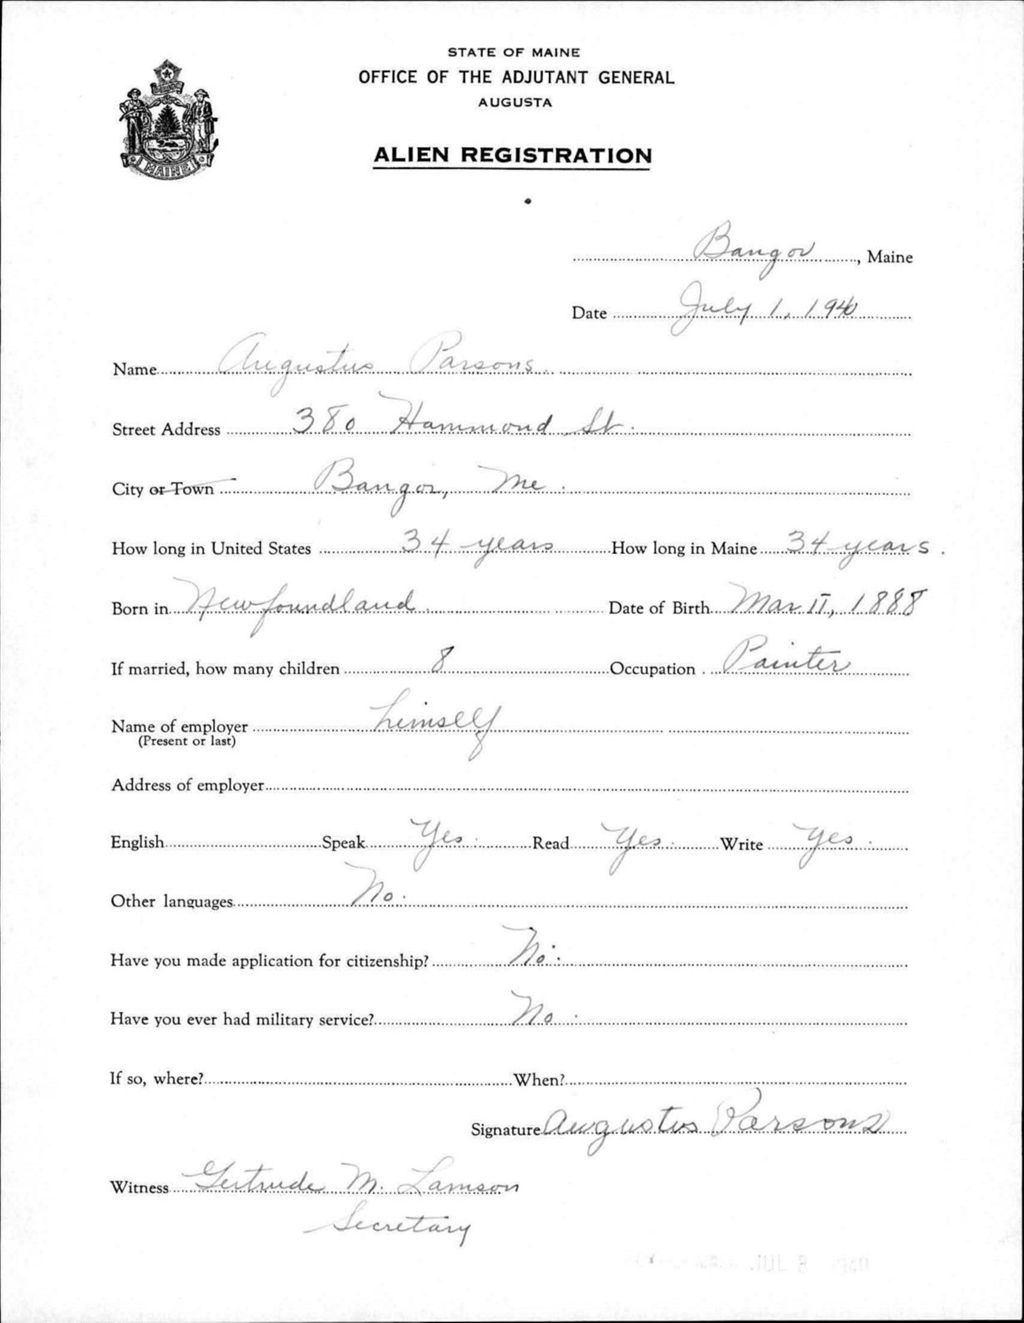 STATE OF MAINE
OFFICE OF THE ADJUTANT GENERAL
AUGUSTA
ALIEN REGISTRATION
MAINE
Bangor, Maine
Date July 1, 1940
Name Augustus Parsons
Street Address 380 Hammond St.
City or Town Bangor, Me.
How long in United States 34 years How long in Maine 34 years.
Born in Newfoundland. Date of Birth Mar 11, 1888
If married, how many children 8 Occupation Painter
Name of employer himself
(Present or last)
Address of employer
English Speak Yes. Read Yes. Write Yes.
Other languages No.
Have you made application for citizenship? No.
Have you ever had military service? No.
If so, where? When?
Signature Augustus Parsons
Witness Gertrude M. Lamson
Secretary
JUL 8 1940